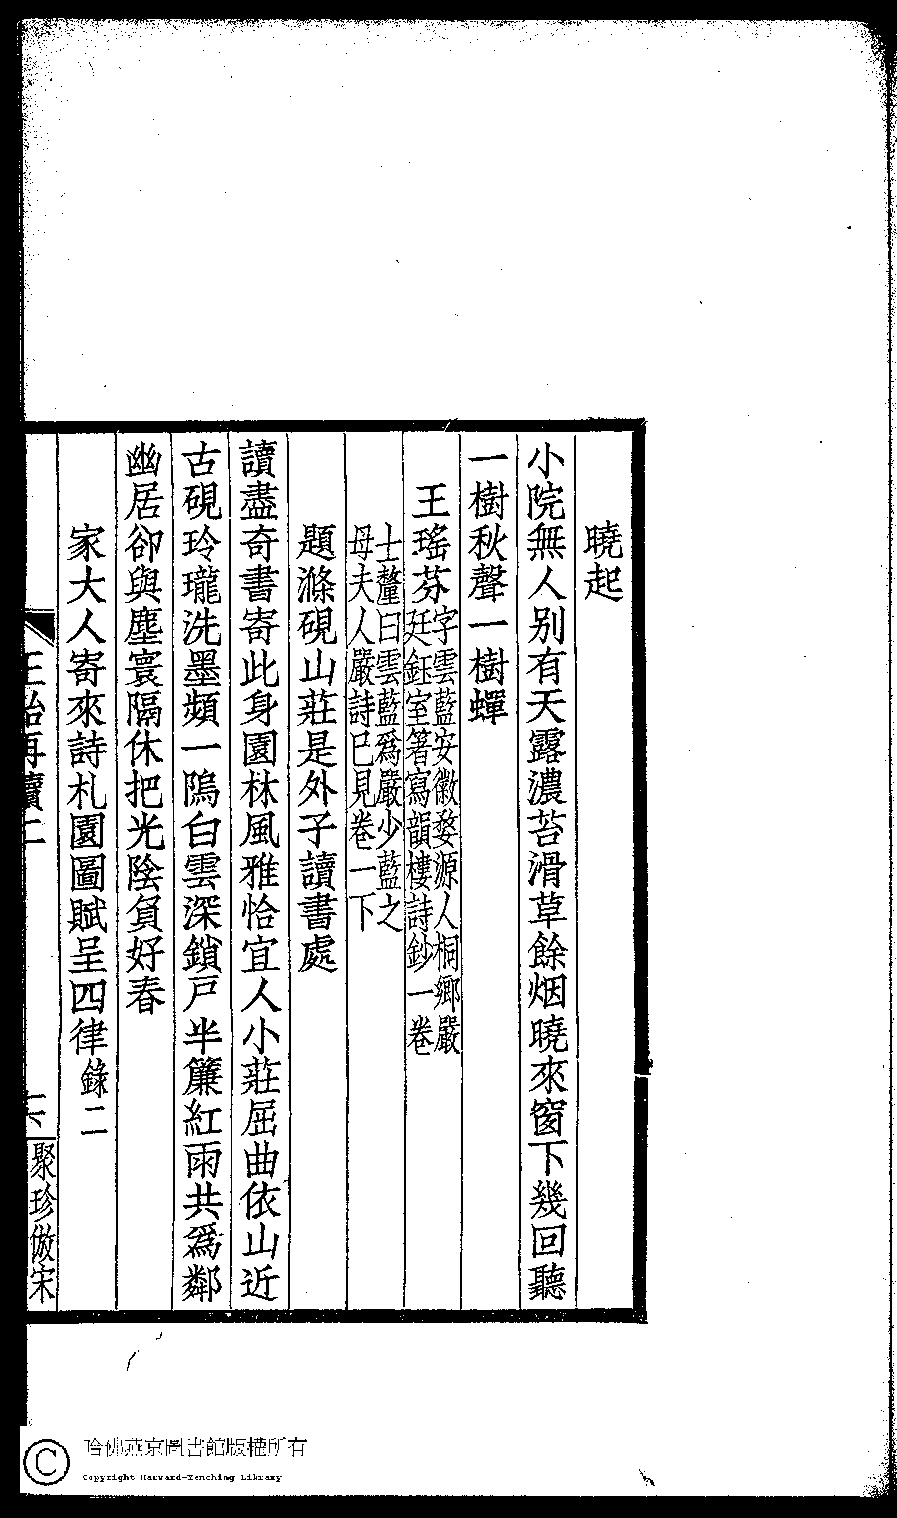 曉起
小院無人别有天露濃苔滑草餘烟曉來窗下幾回聽
一樹秋聲一樹蟬
王瑤芬字雲藍安徽婺源人桐鄉嚴
廷鈺室箸寫韻樓詩鈔一卷
士釐曰雲藍爲嚴少藍之
母夫人嚴詩已見卷一下
題滌硯山莊是外子讀書處
讀盡奇書寄此身園林風雅恰宜人小莊屈曲依山近
古硯玲瓏洗墨頻一隖白雲深鎖戸半簾紅雨共爲鄰
幽居卻與塵寰隔休把光陰負好春
家大人寄來詩札園圖賦呈四律錄二
聚珍倣宋
哈佛燕京圖書館版權所有
Copyright Harvard-Yenching Library